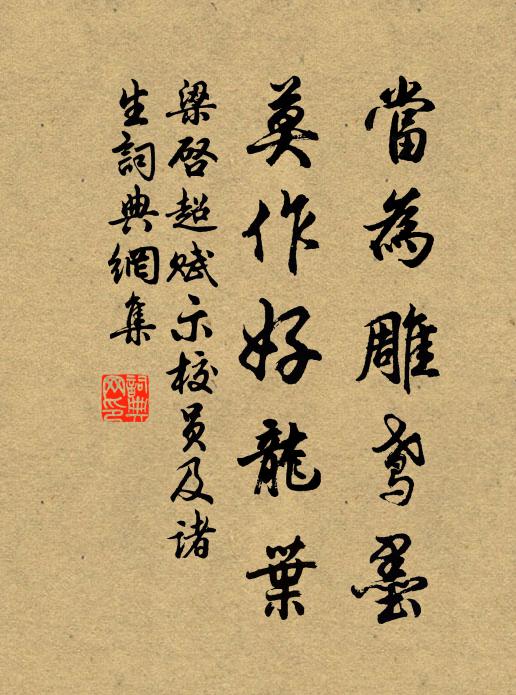 當為雕鸢墨
莫作好龍葉
梁啓超赋示校员及諸
生詞典網集
詞典
网印